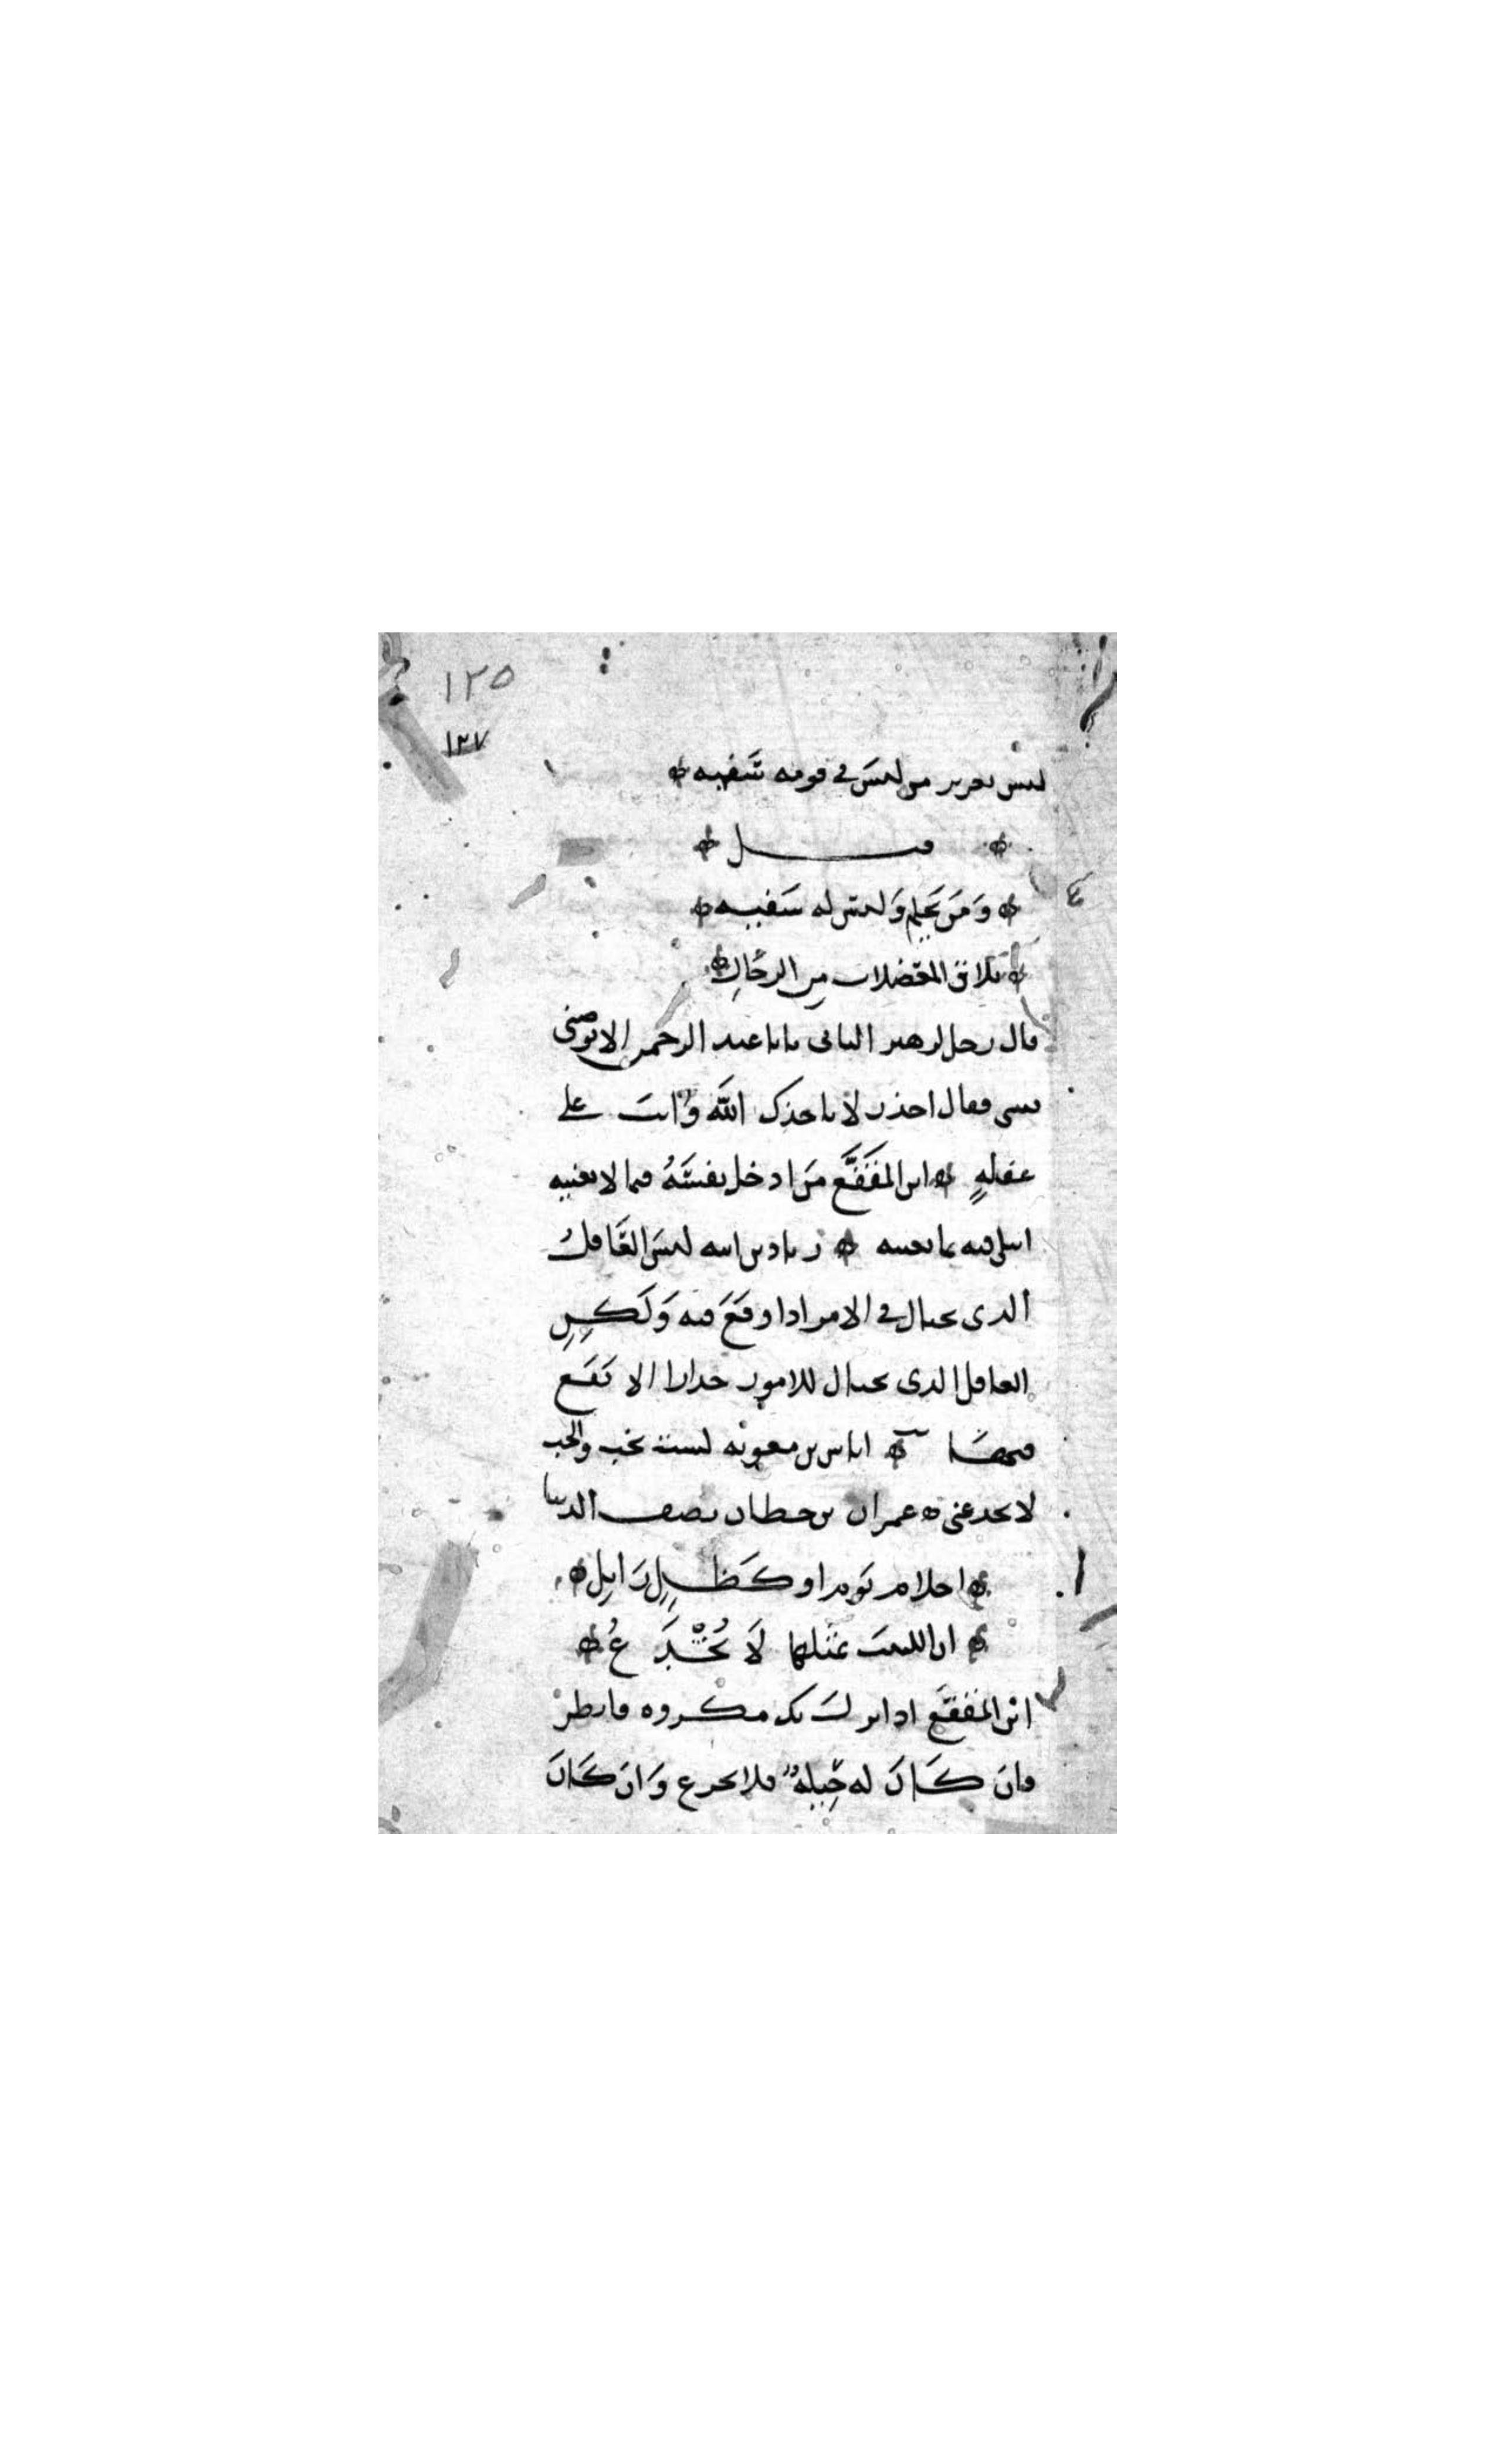 ١٢٥
١٢٧
ليس بعزيز من ليس في قومه سفيه
قيل
ومن يحلم وليس له سفيه
يلاق المعضلات من الرجال
قال رجل لزهير البابي يابا عبد الرحمن الا توصني
بشي فقال احذر لا ياخذك الله وانت على
غفلة ابن المقفع من ادخل نفسه فيما لا يعنيه
ابتلي فيه بما يعنيه زياد بن ابيه ليس العاقل
الذي يحتال في الامر اذا وقع فيه ولكن
العاقل الذي يحتال للامور حذارا الا تقع
فيها اياس بن معوية لست بخب والخب
لا يخدعني عمران بن حطان يصف الدنيا
احلام نوم او كظل زايل
ان اللبيب بمثلها لا يخدع
ابن المقفع اذا نزل بك مكروه فانظر
فان كان له حيلة فلا تجزع وان كان